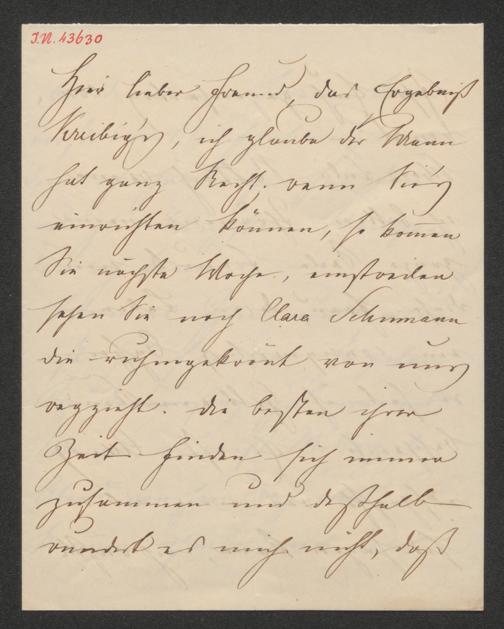 J.N. 43630
Hier lieber Freund, das Ergebniß
Kreibig's, ich glaube der Mann
hat ganz Recht. wenn Sie's
einrichten können, so kom̄en
Sie nächste Woche, einstweilen
sehen Sie noch Clara Schumann
die ruhmgekrönt von uns
wegzieht. die besten ihrer
Zeit finden sich immer
zusammen und deßhalb
wundert es mich nicht, daß